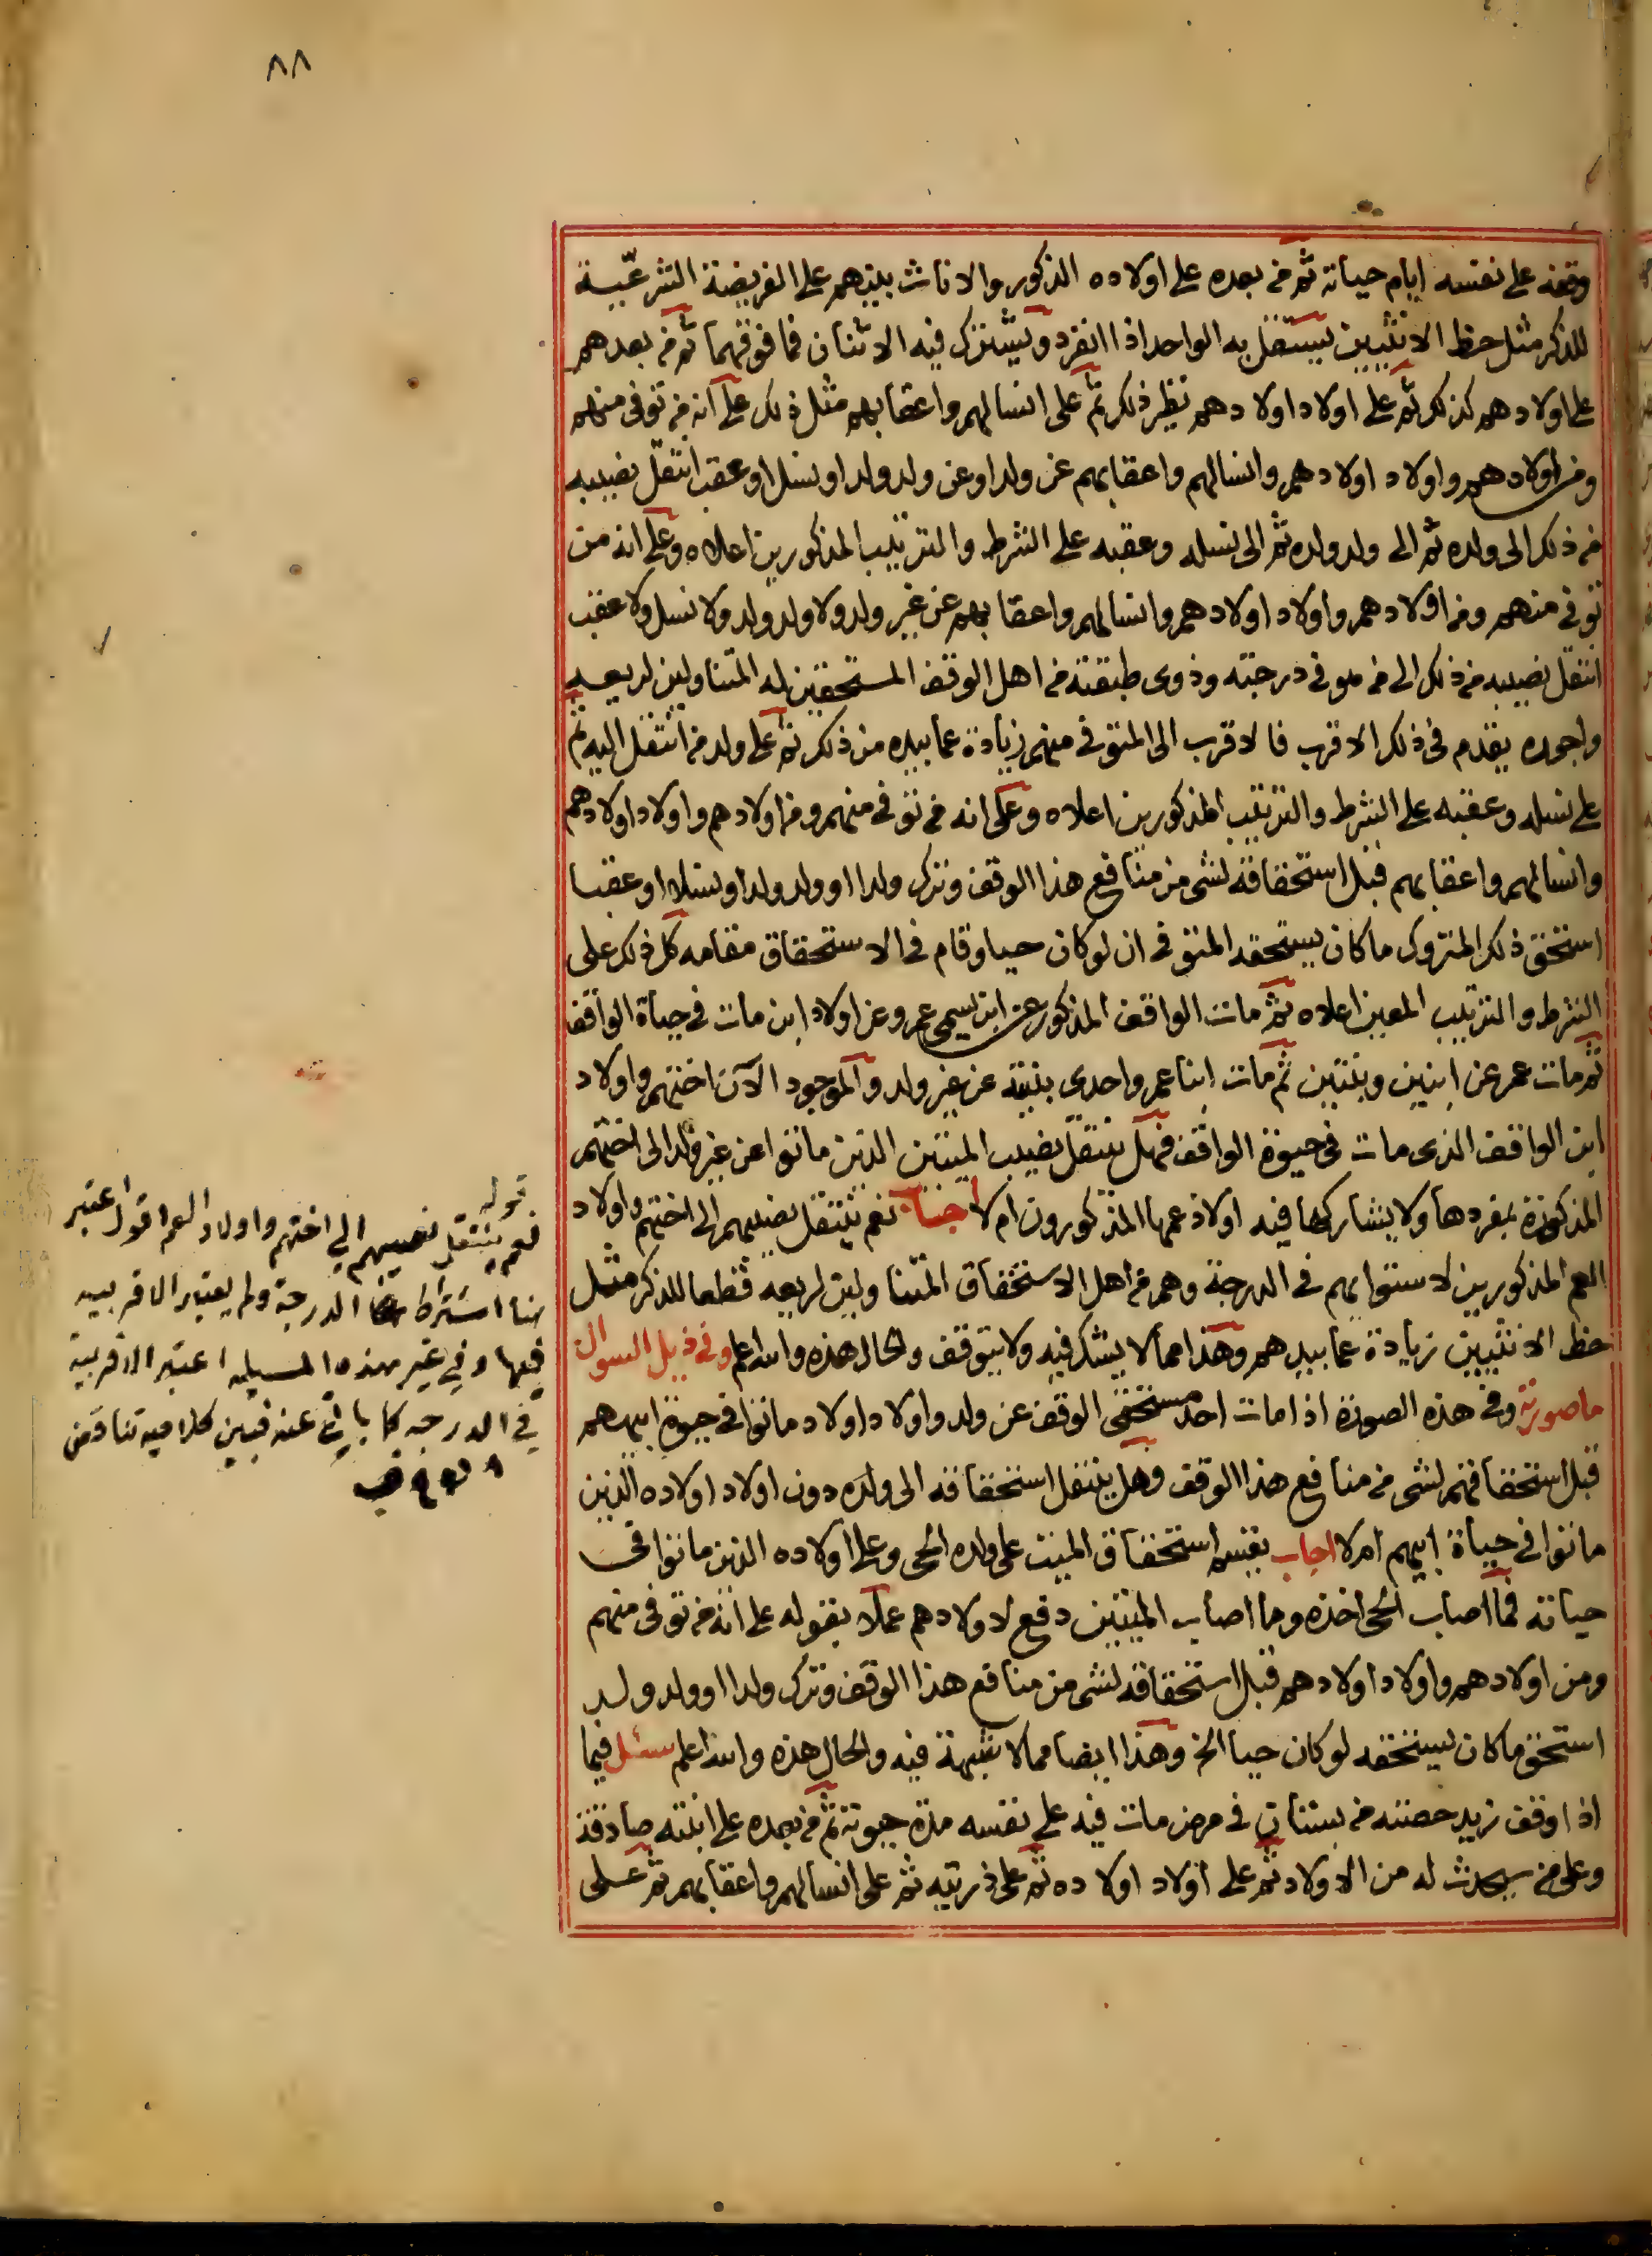 ٨٨
وقفه على نفسه ايام حياته ثم من بعده على اولاده الذكور والاناث بينهم على الفريضة الشرعية
للذكر مثل حظ الانثيين يستقل به الواحد اذا انفرد ويشترك فيه الاثنان فما فوقهما ثم من بعدهم
على اولادهم كذلك ثم على اولاد اولادهم نظير ذلك ثم على انسالهم واعقابهم مثل ذلك على انه من توفى منهم
ومن اولادهم واولاد اولادهم وانسالهم واعقابهم عن ولد او عن ولد ولد او نسل او عقب انتقل نصيبه
من ذلك الى ولده ثم الى ولد ولده ثم الى نسله وعقبه على الشرط والترتيب المذكورين اعلاه وعلى انه من
توفى منهم ومن اولادهم واولاد اولادهم وانسالهم واعقابهم عن غير ولد ولا ولد ولد ولا نسل ولا عقب
انتقل نصيبه من ذلك الى من هو فى درجته وذوى طبقته من اهل الوقف المستحقين له المتناولين لريعه
واجوره يقدم فى ذلك الاقرب فالاقرب الى المتوفى منهم زيادة عما بيده من ذلك ثم على ولد من انتقل اليه ثم
على نسله وعقبه على الشرط والترتيب المذكورين اعلاه وعلى انه من توفى منهم ومن اولادهم واولاد اولادهم
وانسالهم واعقابهم قبل استحقاقه لشى من منافع هذا الوقف وترك ولدا او ولد ولد او نسلا او عقبا
استحق ذلك المتروك ما كان يستحقه المتوفى ان لو كان حيا وقام فى الاستحقاق مقامه كل ذلك على
الشرط والترتيب المعين اعلاه ثم مات الواقف المذكور عن ابن يسمى عمر وعن اولاد ابن مات فى حياة الواقف
ثم مات عمر عن ابنين وبنتين ثم مات ابنا عمر واحدى بنتيه عن غير ولد والموجود الآن اختهم واولاد
ابن الواقف الذى مات فى حيوة الواقف فهل ينتقل نصيب الميتين الذين ماتوا عن غير ولد الى اختهم
المذكورة بمفردها ولا يشاركها فيه اولاد عمها المذكورون ام لا اجاب نعم ينتقل نصيبهم الى اختهم واولاد
العم المذكورين لاستوايهم فى الدرجة وهم من اهل الاستحقاق المتناولين لريعه قطعا للذكر مثل
حظ الانثيين زيادة عما بيدهم وهذا مما لا يشك فيه ولا يتوقف والحال هذه والله اعلم وفى ذيل السوال
ما صورته وفى هذه الصورة اذا مات احد مستحقى الوقف عن ولد واولاد اولاد ماتوا فى حيوة ابيهم
قبل استحقاقهم لشى من منافع هذا الوقف وهل ينتقل استحقاقه الى ولده دون اولاد اولاده الذين
ماتوا فى حياة ابيهم ام لا اجاب يقسم استحقاق الميت على ولده الحى وعلى اولاده الذين ماتوا فى
حياته فما اصاب الحى اخذه وما اصاب الميتين دفع لاولادهم عملا بقوله على انه من توفى منهم
ومن اولادهم واولاد اولادهم قبل استحقاقه لشى من منافع هذا الوقف وترك ولدا او ولد ولد
استحق ما كان يستحقه لو كان حيا الخ وهذا ايضا مما لا شبهة فيه والحال هذه والله اعلم سئل فيما
اذا وقف زيد حصته من بستان فى مرض مات فيه على نفسه مدة حيوته ثم من بعده على ابنته صادقة
وعلى من سيحدث له من الاولاد ثم على اولاد اولاده ثم على ذريته ثم على انسالهم واعقابهم ثم على
قوله
نعم ينتقل نصيبهم الي اختهم واولاد العم اقول اعتبر
هنا اشتراط الدرجة ولم يعتبر الاقربيه
فيها وفي غير هذه المسيله اعتبر الاقربية
في الدرجه كما ياتي عنه فبين كلاميه تناقض